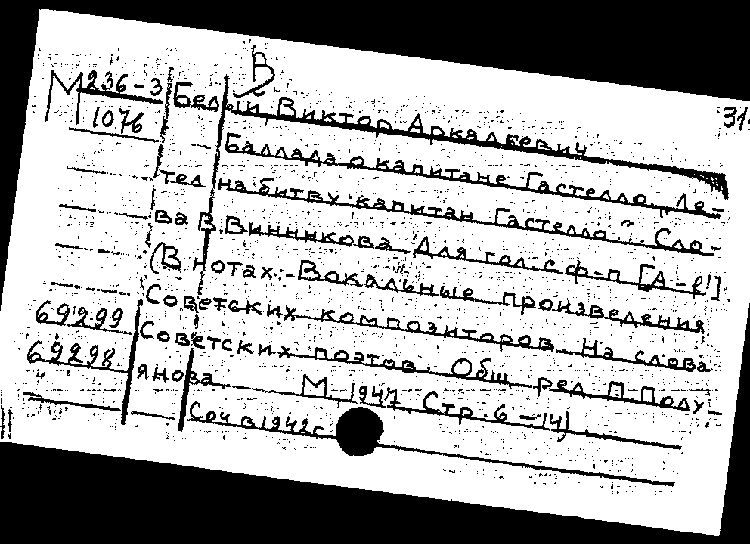 В
М 236-3
1076
31
Белый, Виктор Аркадьевич
Баллада о капитане Гастелло „Ле-
тел на битву капитан Гастелло". Сло-
ва В. Винникова. Для гол. с ф-п [А-f²]
(В нотах: Вокальные произведения
Советских композиторов. На слова
Советских поэтов. Общ. ред. П. Полу-
янова. М. 1947. Стр. 6-14)
69299
69298
Соч. в 1942 г.